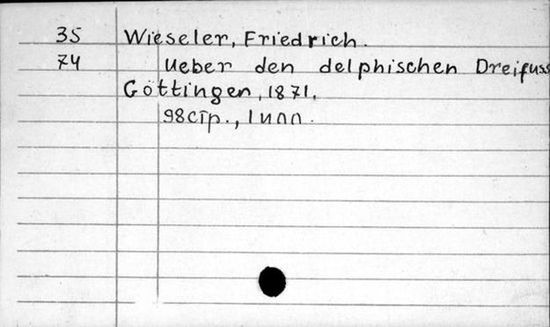 35 Wieseler, Friedrich.
74 Ueber den delphischen Dreifuss
Göttingen, 1871.
98 стр., 1 илл.